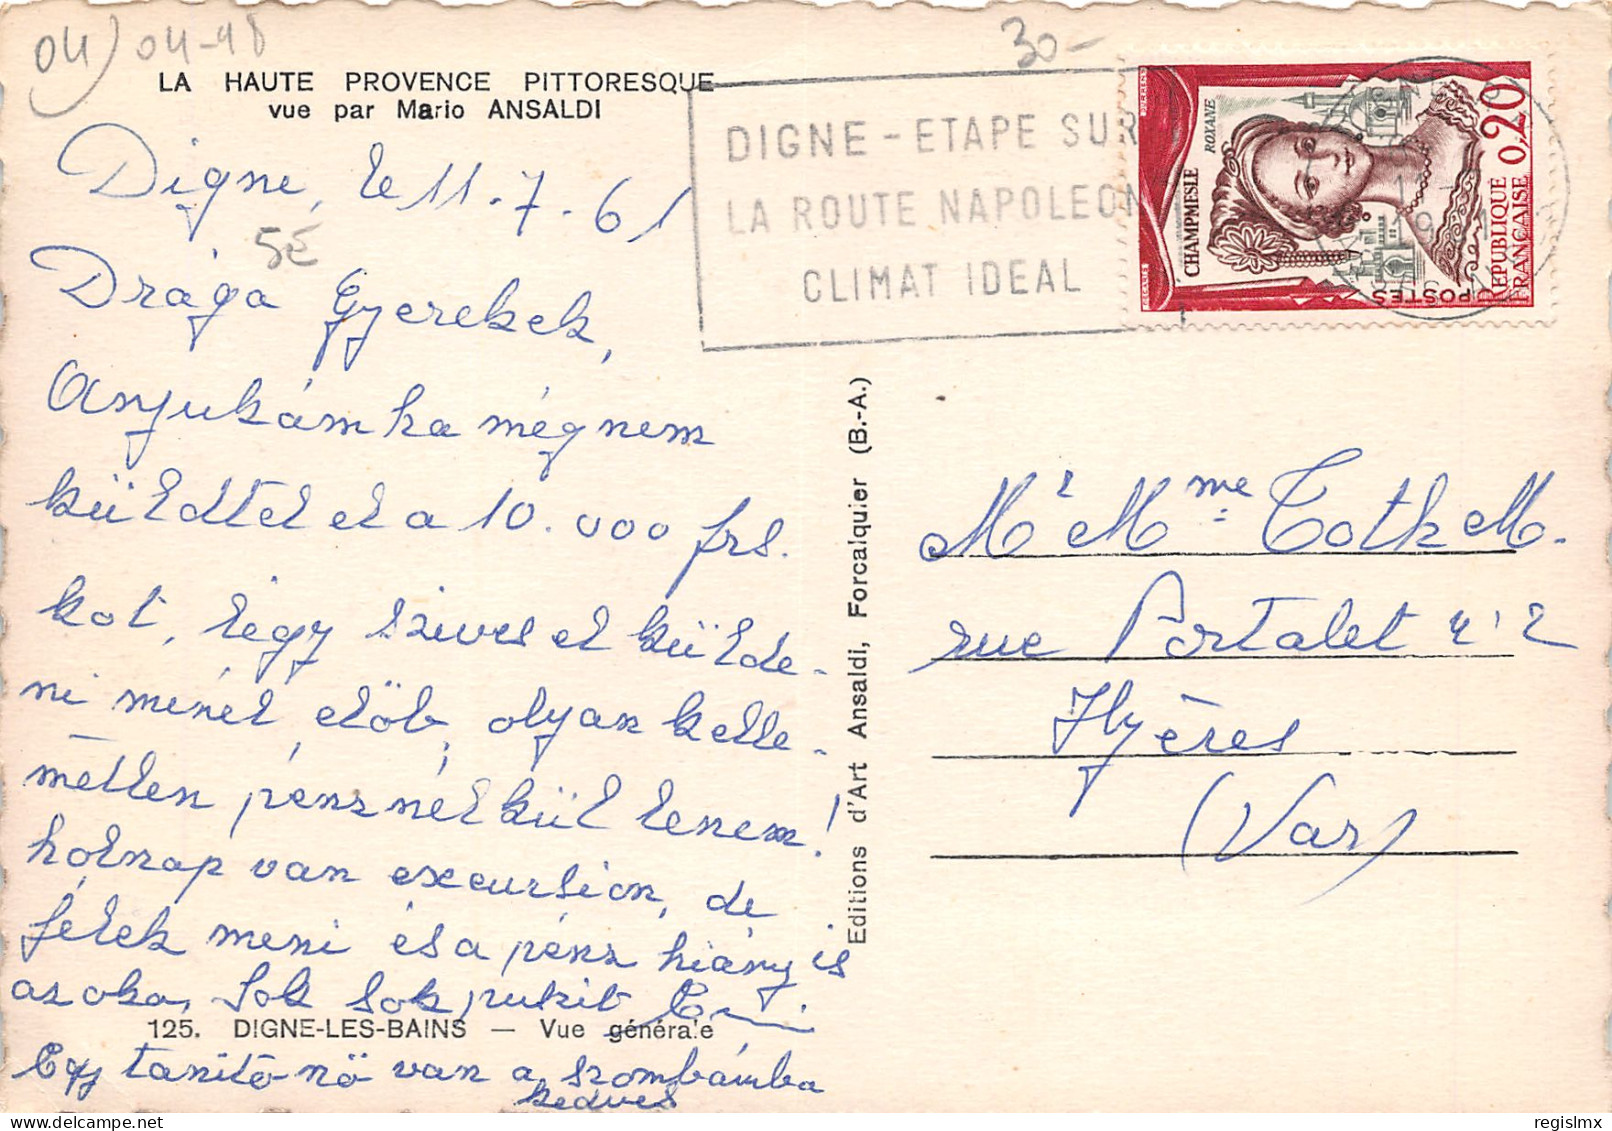 04) 04-98
30-
LA HAUTE PROVENCE PITTORESQUE
vue par Mario ANSALDI
DIGNE - ETAPE SUR
LA ROUTE NAPOLEON
CLIMAT IDEAL
ROXANE
CHAMPMESLE
0,20
REPUBLIQUE
FRANÇAISE
POSTES
Digne, le 11.7.61
5E
Drága Gyerekek,
Anyukám ha mégnem
küldtel el a 10.000 frs.
kot, légy szives elkülde-
ni minél elöb, olyan kelle-
metlen pénznélkül lenem!
holnap van excursion, de
félek meni és a pénz hiány is
az oka, sok sok puszit
125. DIGNE-LES-BAINS — Vue générale
Egy tanitó nö van a szombámba
kedves
Editions d'Art Ansaldi, Forcalquier (B.-A.)
Mr Mme Toth M.
rue Portalet n° 2
Hyères
(Var)
regislmx